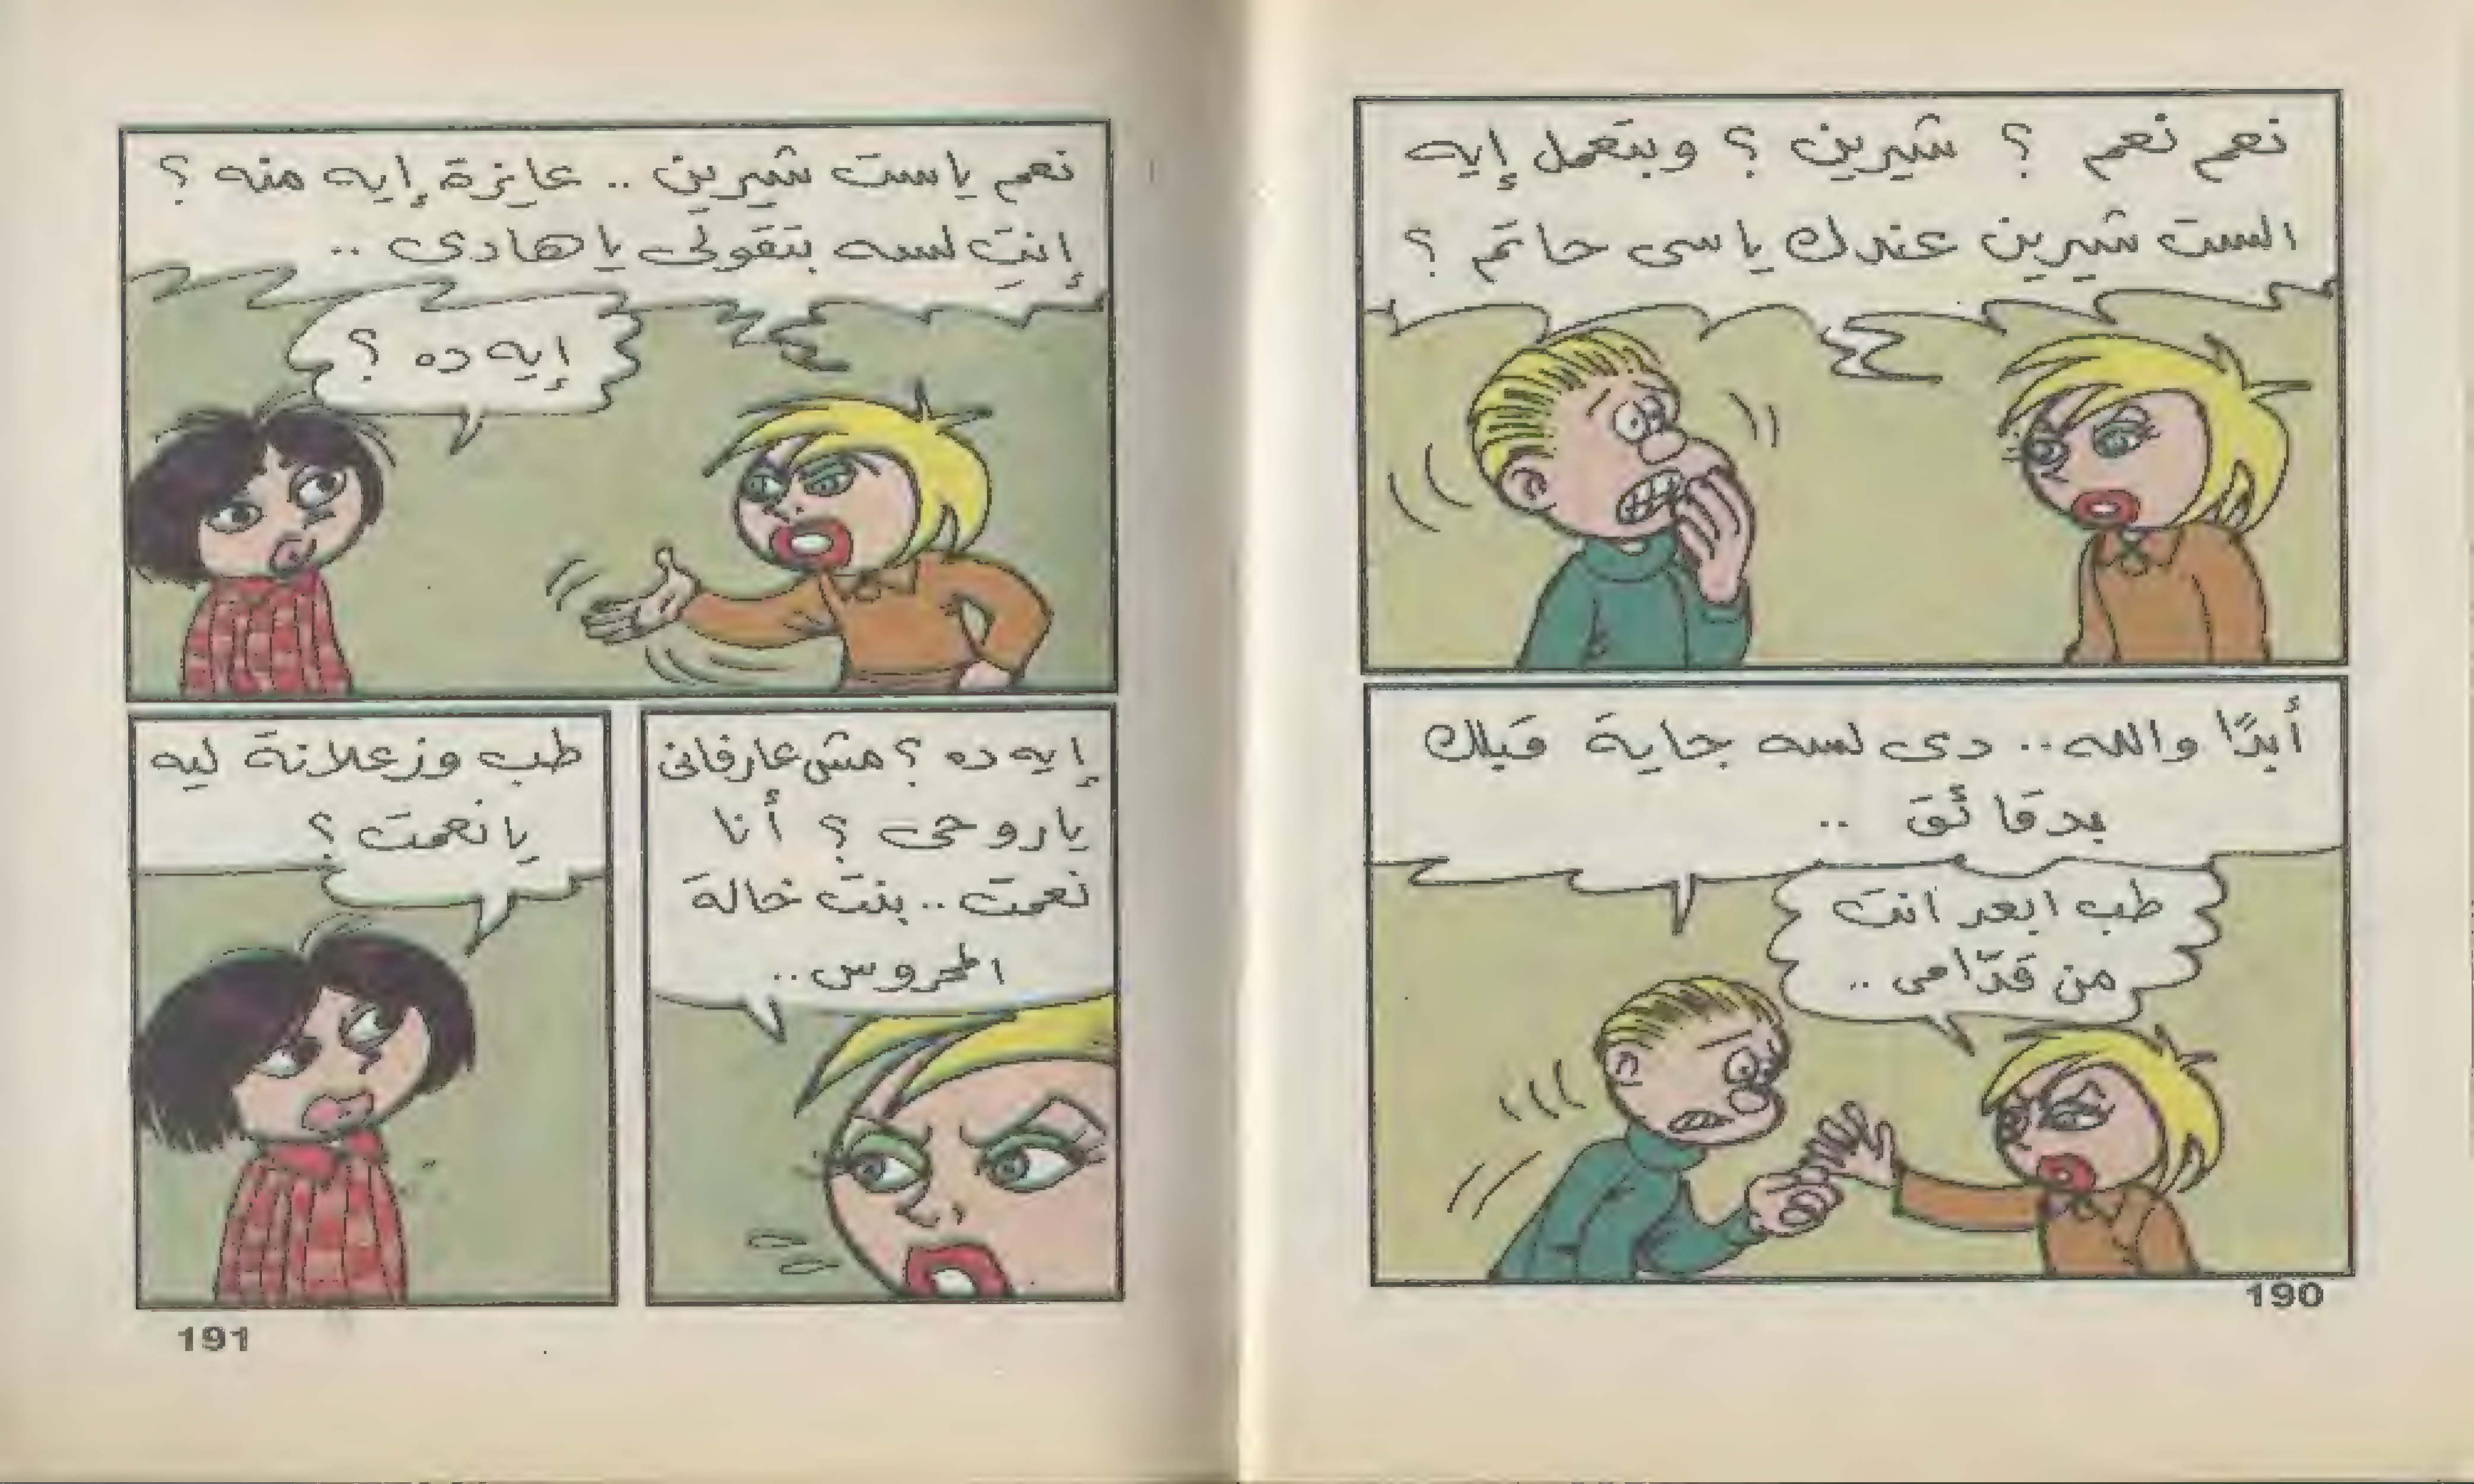 نعم نعم ؟ شيرين ؟ وبتعمل إيه
الست شيرين عندك ياسى حاتم ؟
أبدًا والله.. دى لسه جاية قبلك
بدقائق ..
طب ابعد انت
من قدّامى ..
190
نعم ياست شيرين .. عايزة إيه منه ؟
إنتِ لسه بتقولى ياهادى ..
إيه ده ؟
إيه ده ؟ مش عارفانى
ياروحى ؟ أنا
نعمت .. بنت خالة
المحروس ..
طب وزعلانة ليه
يانعمت ؟
191